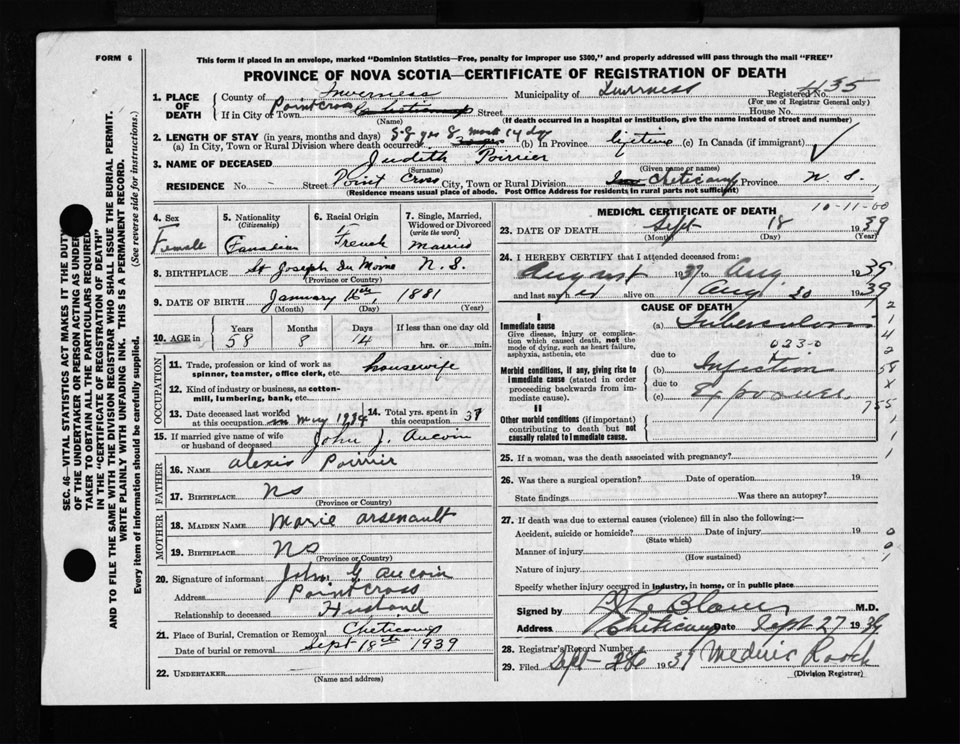 FORM 6
This form if placed in an envelope, marked "Dominion Statistics—Free, penalty for improper use $300," and properly addressed will pass through the mail "FREE"
PROVINCE OF NOVA SCOTIA—CERTIFICATE OF REGISTRATION OF DEATH
SEC. 46—VITAL STATISTICS ACT MAKES IT THE DUTY
OF THE UNDERTAKER OR PERSON ACTING AS UNDER-
TAKER TO OBTAIN ALL THE PARTICULARS REQUIRED
IN THE "CERTIFICATE OF REGISTRATION OF DEATH"
AND TO FILE THE SAME WITH THE DIVISION REGISTRAR WHO SHALL ISSUE THE BURIAL PERMIT.
WRITE PLAINLY WITH UNFADING INK. THIS IS A PERMANENT RECORD.
Every item of information should be carefully supplied. (See reverse side for instructions.)
1. PLACE OF DEATH
County of Inverness Municipality of Inverness Registered No. 435
(For use of Registrar General only)
If in City of Town Point Cross Cheticamp Street House No.
(Name) (If death occurred in a hospital or institution, give the name instead of street and number)
2. LENGTH OF STAY (in years, months and days)
(a) In City, Town or Rural Division where death occurred 58 yrs 8 month 14 dys (b) In Province lifetime (c) In Canada (if immigrant)
3. NAME OF DECEASED Judith Poirier
(Surname) (Given name or names)
RESIDENCE No. — Street Point Cross City, Town or Rural Division Cheticamp Province N.S.
(Residence means usual place of abode. Post Office Address for residents in rural parts not sufficient)
4. Sex Female
5. Nationality (Citizenship) Canadian
6. Racial Origin French
7. Single, Married, Widowed or Divorced (write the word) Married
8. BIRTHPLACE St Joseph Du Moine N.S.
(Province or Country)
9. DATE OF BIRTH January 16th, 1881
(Month) (Day) (Year)
10. AGE in Years 58 Months 8 Days 14 If less than one day hrs. or min.
OCCUPATION
11. Trade, profession or kind of work as spinner, teamster, office clerk, etc. housewife
12. Kind of industry or business, as cotton-mill, lumbering, bank, etc.
13. Date deceased last worked at this occupation in May 1934
14. Total yrs. spent in this occupation
15. If married give name of wife or husband of deceased John J. Aucoin
FATHER
16. NAME Alexis Poirier
17. BIRTHPLACE NS
(Province or Country)
MOTHER
18. MAIDEN NAME Marie Arsenault
19. BIRTHPLACE NS
(Province or Country)
20. Signature of informant John G Aucoin
Address Point Cross
Relationship to deceased Husband
21. Place of Burial, Cremation or Removal Cheticamp
Date of burial or removal Sept 18th 1939
22. UNDERTAKER
(Name and address)
MEDICAL CERTIFICATE OF DEATH 10-11-00
23. DATE OF DEATH Sept 18 1939
(Month) (Day) (Year)
24. I HEREBY CERTIFY that I attended deceased from:
August 1937 to Aug 1939
and last saw her alive on Aug 30 1939
CAUSE OF DEATH
I
Immediate cause
Give disease, injury or complication which caused death, not the mode of dying, such as heart failure, asphyxia, asthenia, etc
(a) Tuberculosis
023-0
due to
Morbid conditions, if any, giving rise to immediate cause (stated in order proceeding backwards from immediate cause).
(b) Infection
due to
(c) Exposure
II
Other morbid conditions (if important) contributing to death but not causally related to immediate cause.
25. If a woman, was the death associated with pregnancy?
26. Was there a surgical operation? Date of operation 19
State findings Was there an autopsy?
27. If death was due to external causes (violence) fill in also the following:—
Accident, suicide or homicide? Date of injury 19
(State which)
Manner of injury
(How sustained)
Nature of injury
Specify whether injury occurred in industry, in home, or in public place
Signed by LeBlanc M.D.
Address Cheticamp Date Sept 27 1939
28. Registrar's Record Number
29. Filed Sept 28 1939 Mederic Roach
(Division Registrar)